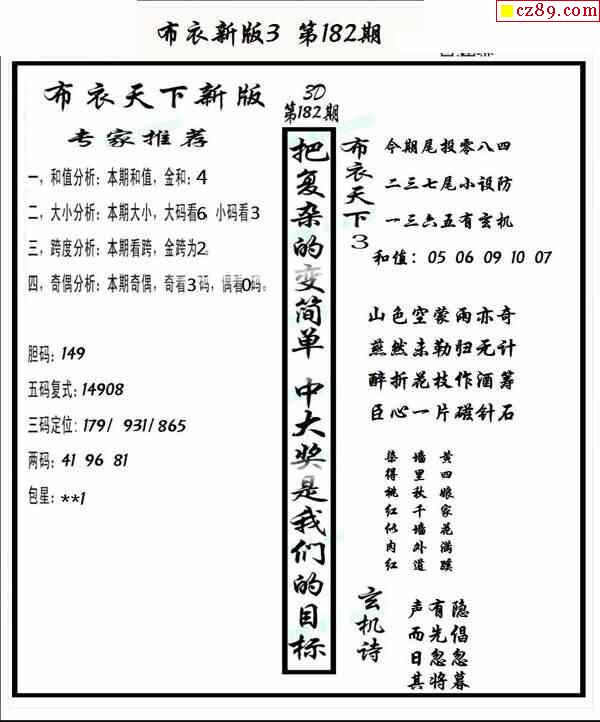 cz89.com
布衣新版3 第182期
布衣天下新版
专家推荐
一，和值分析：本期和值，金和：4
二，大小分析：本期大小，大码看6，小码看3
三，跨度分析：本期看跨，金跨为2。
四，奇偶分析：本期奇偶，奇看3码，偶看0码。
胆码：149
五码复式：14908
三码定位：179/ 931/865
两码：41 96 81
包星：**1
3D
第182期
把复杂的变简单 中大奖是我们的目标
布衣天下3
今期尾投零八四
二三七尾小设防
一三六五有玄机
和值：05 06 09 10 07
山色空蒙雨亦奇
燕然未勒归无计
醉折花枝作酒筹
臣心一片磁针石
黄四娘家花满蹊
墙里秋千墙外道
染得桃红似肉红
玄机诗
隐倡忽暮
有先忽将
声而日其